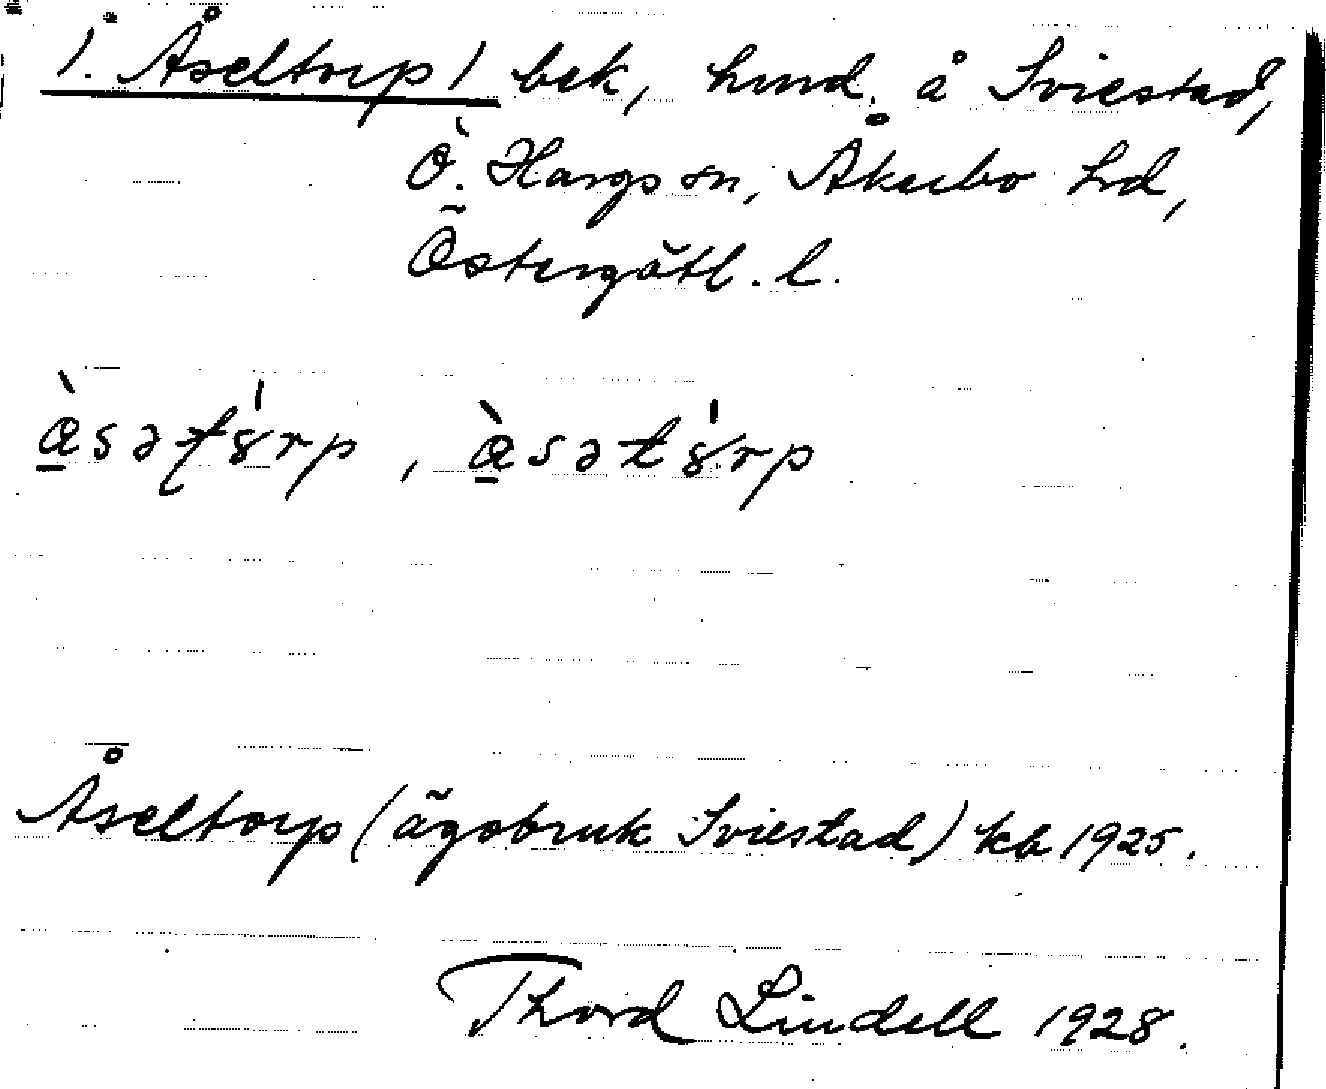 1. Åseltorp 1 bek, hmd. å Sviestad,
Ö. Hargs sn, Åkerbo hrd,
Östergötl. l.
Åseltorp (ägobruk Sviestad) kb 1925.
Thord Lindell 1928.